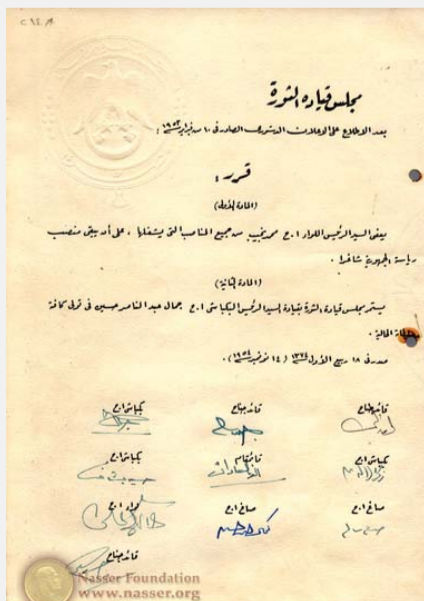 مجلس قيادة الثورة
بعد الاطلاع على الاعلان الدستورى الصادر فى ١٠ من فبراير سنة ١٩٥٣ ؛
قرر :
(المادة الأولى)
يعفى السيد الرئيس اللواء ا.ح محمد نجيب من جميع المناصب التى يشغلها ، على أن يبقى منصب
رياسة الجمهورية شاغرا .
(المادة الثانية)
يستمر مجلس قيادة الثورة بقيادة السيد الرئيس البكباشى ا.ح جمال عبد الناصر حسين فى تولى كافة
الحالية .
صدر فى ١٨ ربيع الأول سنة ١٣٧٤ (١٤ نوفمبر سنة ١٩٥٤) .
قائد جناح قائد جناح بكباشى ا.ح
بكباشى ا.ح قائمقام بكباشى ا.ح
صاغ ا.ح صاغ ا.ح لواء ا.ح
قائد جناح
Nasser Foundation
www.nasser.org